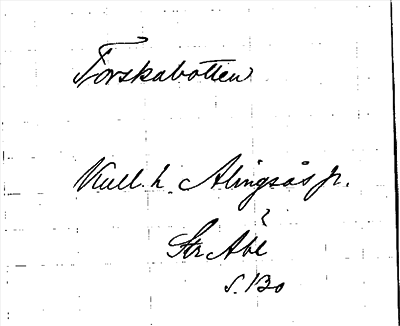 Torskabotten
Kull. h. Alingsås jr.
?
Str Åbl
s. 130